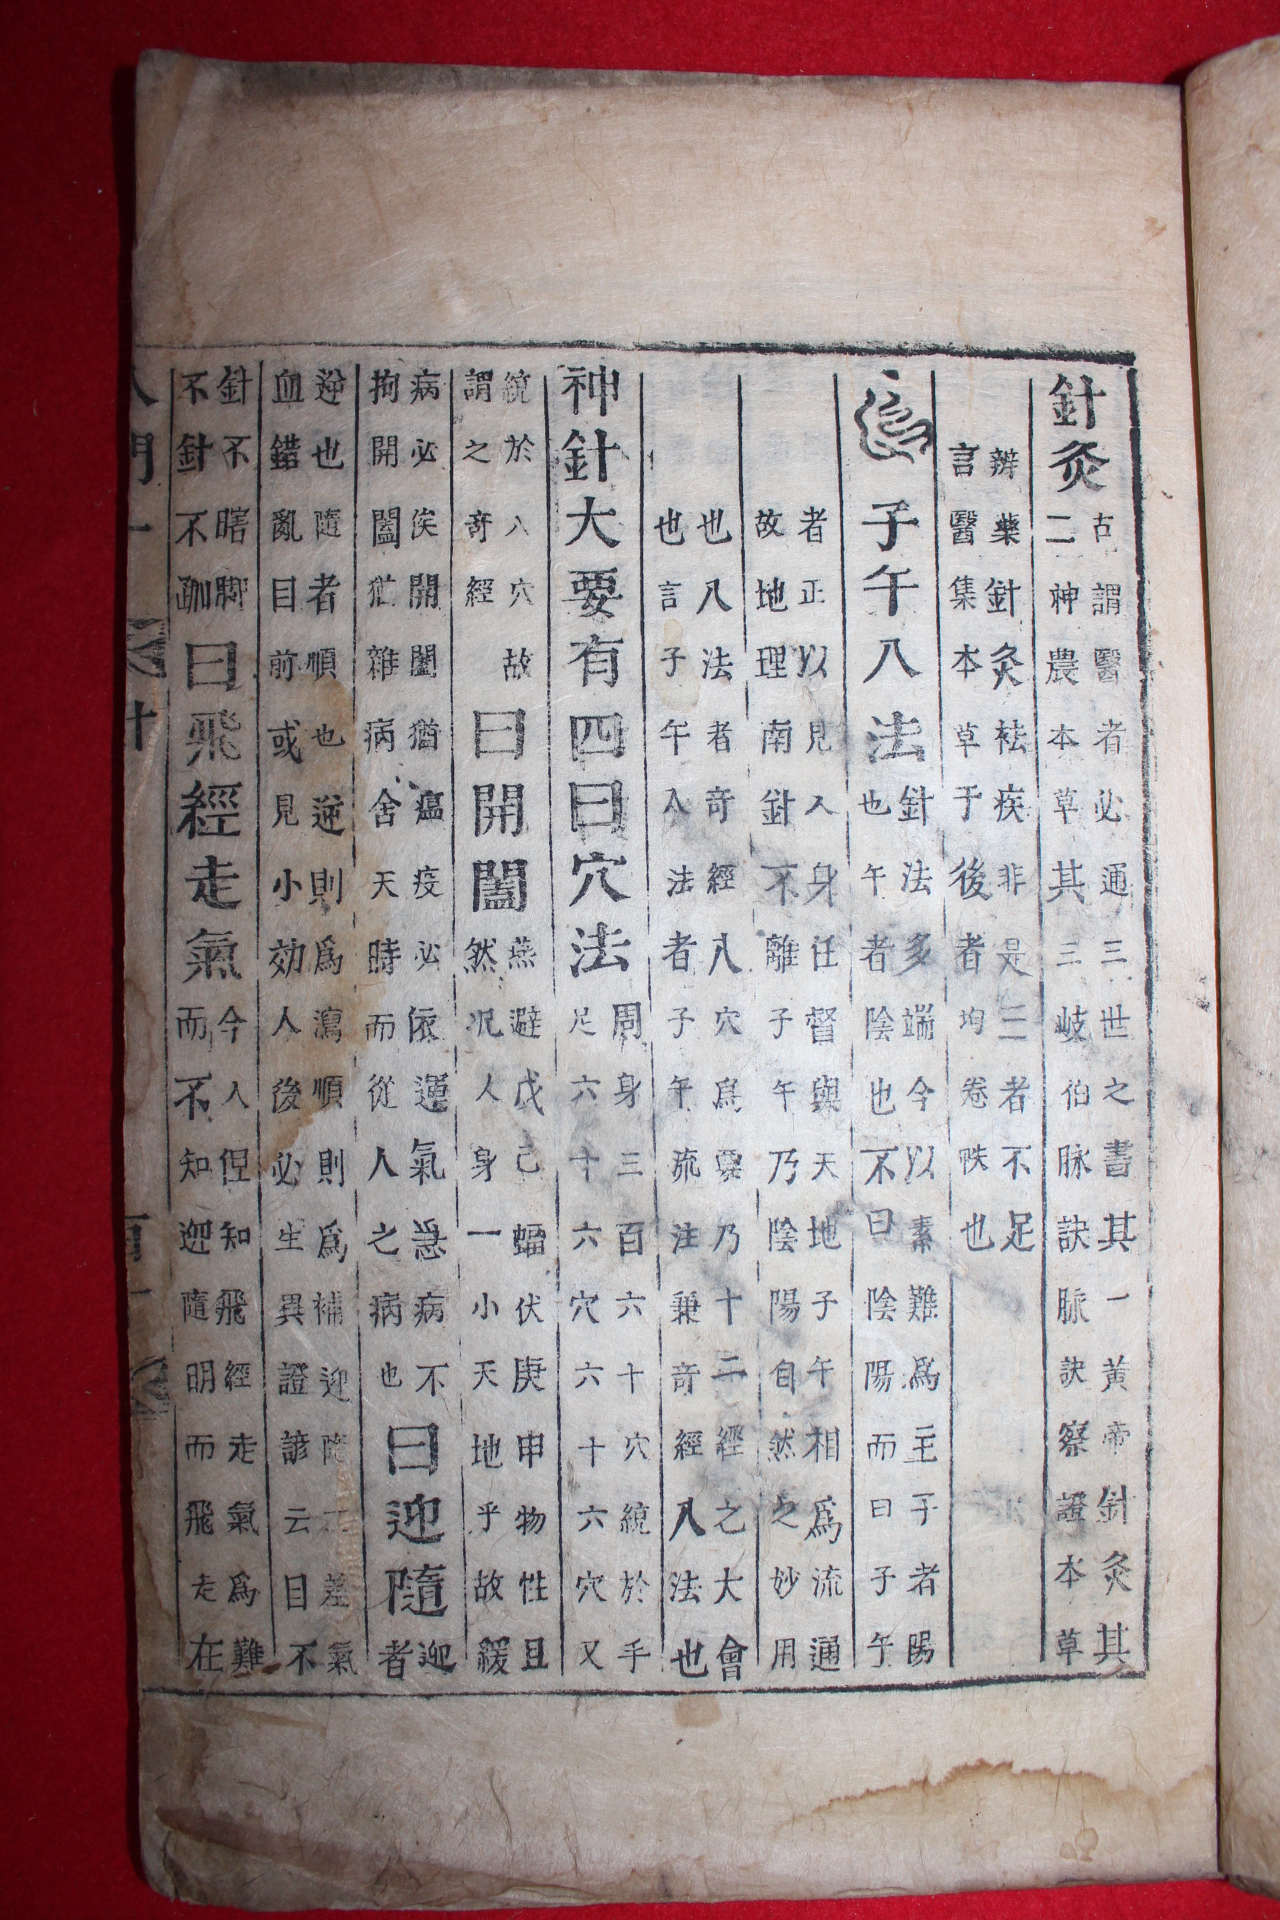 針灸
古謂醫者必通三世之書其一黃帝針灸其
二神農本草其三岐伯脉訣脈訣察證本草
辨藥針灸祛疾非是三者不足
言醫集本草于後者均卷帙也
子午八法
針法多端今以素難爲主子者陽
也午者陰也不曰陰陽而曰子午
者正以見人身任督與天地子午相爲流通
故地理南針不離子午乃陰陽自然之妙用
也八法者奇經八穴爲要乃十二經之大會
也言子午八法者子午流注兼奇經八法也
神針大要有四曰穴法
周身三百六十穴統於手
足六十六穴六十六穴又
統於八穴故
謂之奇經
曰開闔
燕避戊己蝠伏庚申物性且
然况人身一小天地乎故緩
病必俟開闔猶瘟疫必依運氣急病不
拘開闔猶雜病舍天時而從人之病也
曰迎隨
迎
者
逆也隨者順也逆則爲瀉順則爲補迎隨一差氣
血錯亂目前或見小効人後必生異證諺云目不
針不瞎脚
不針不跏
曰飛經走氣
今人但知飛經走氣爲難
而不知迎隨明而飛走在